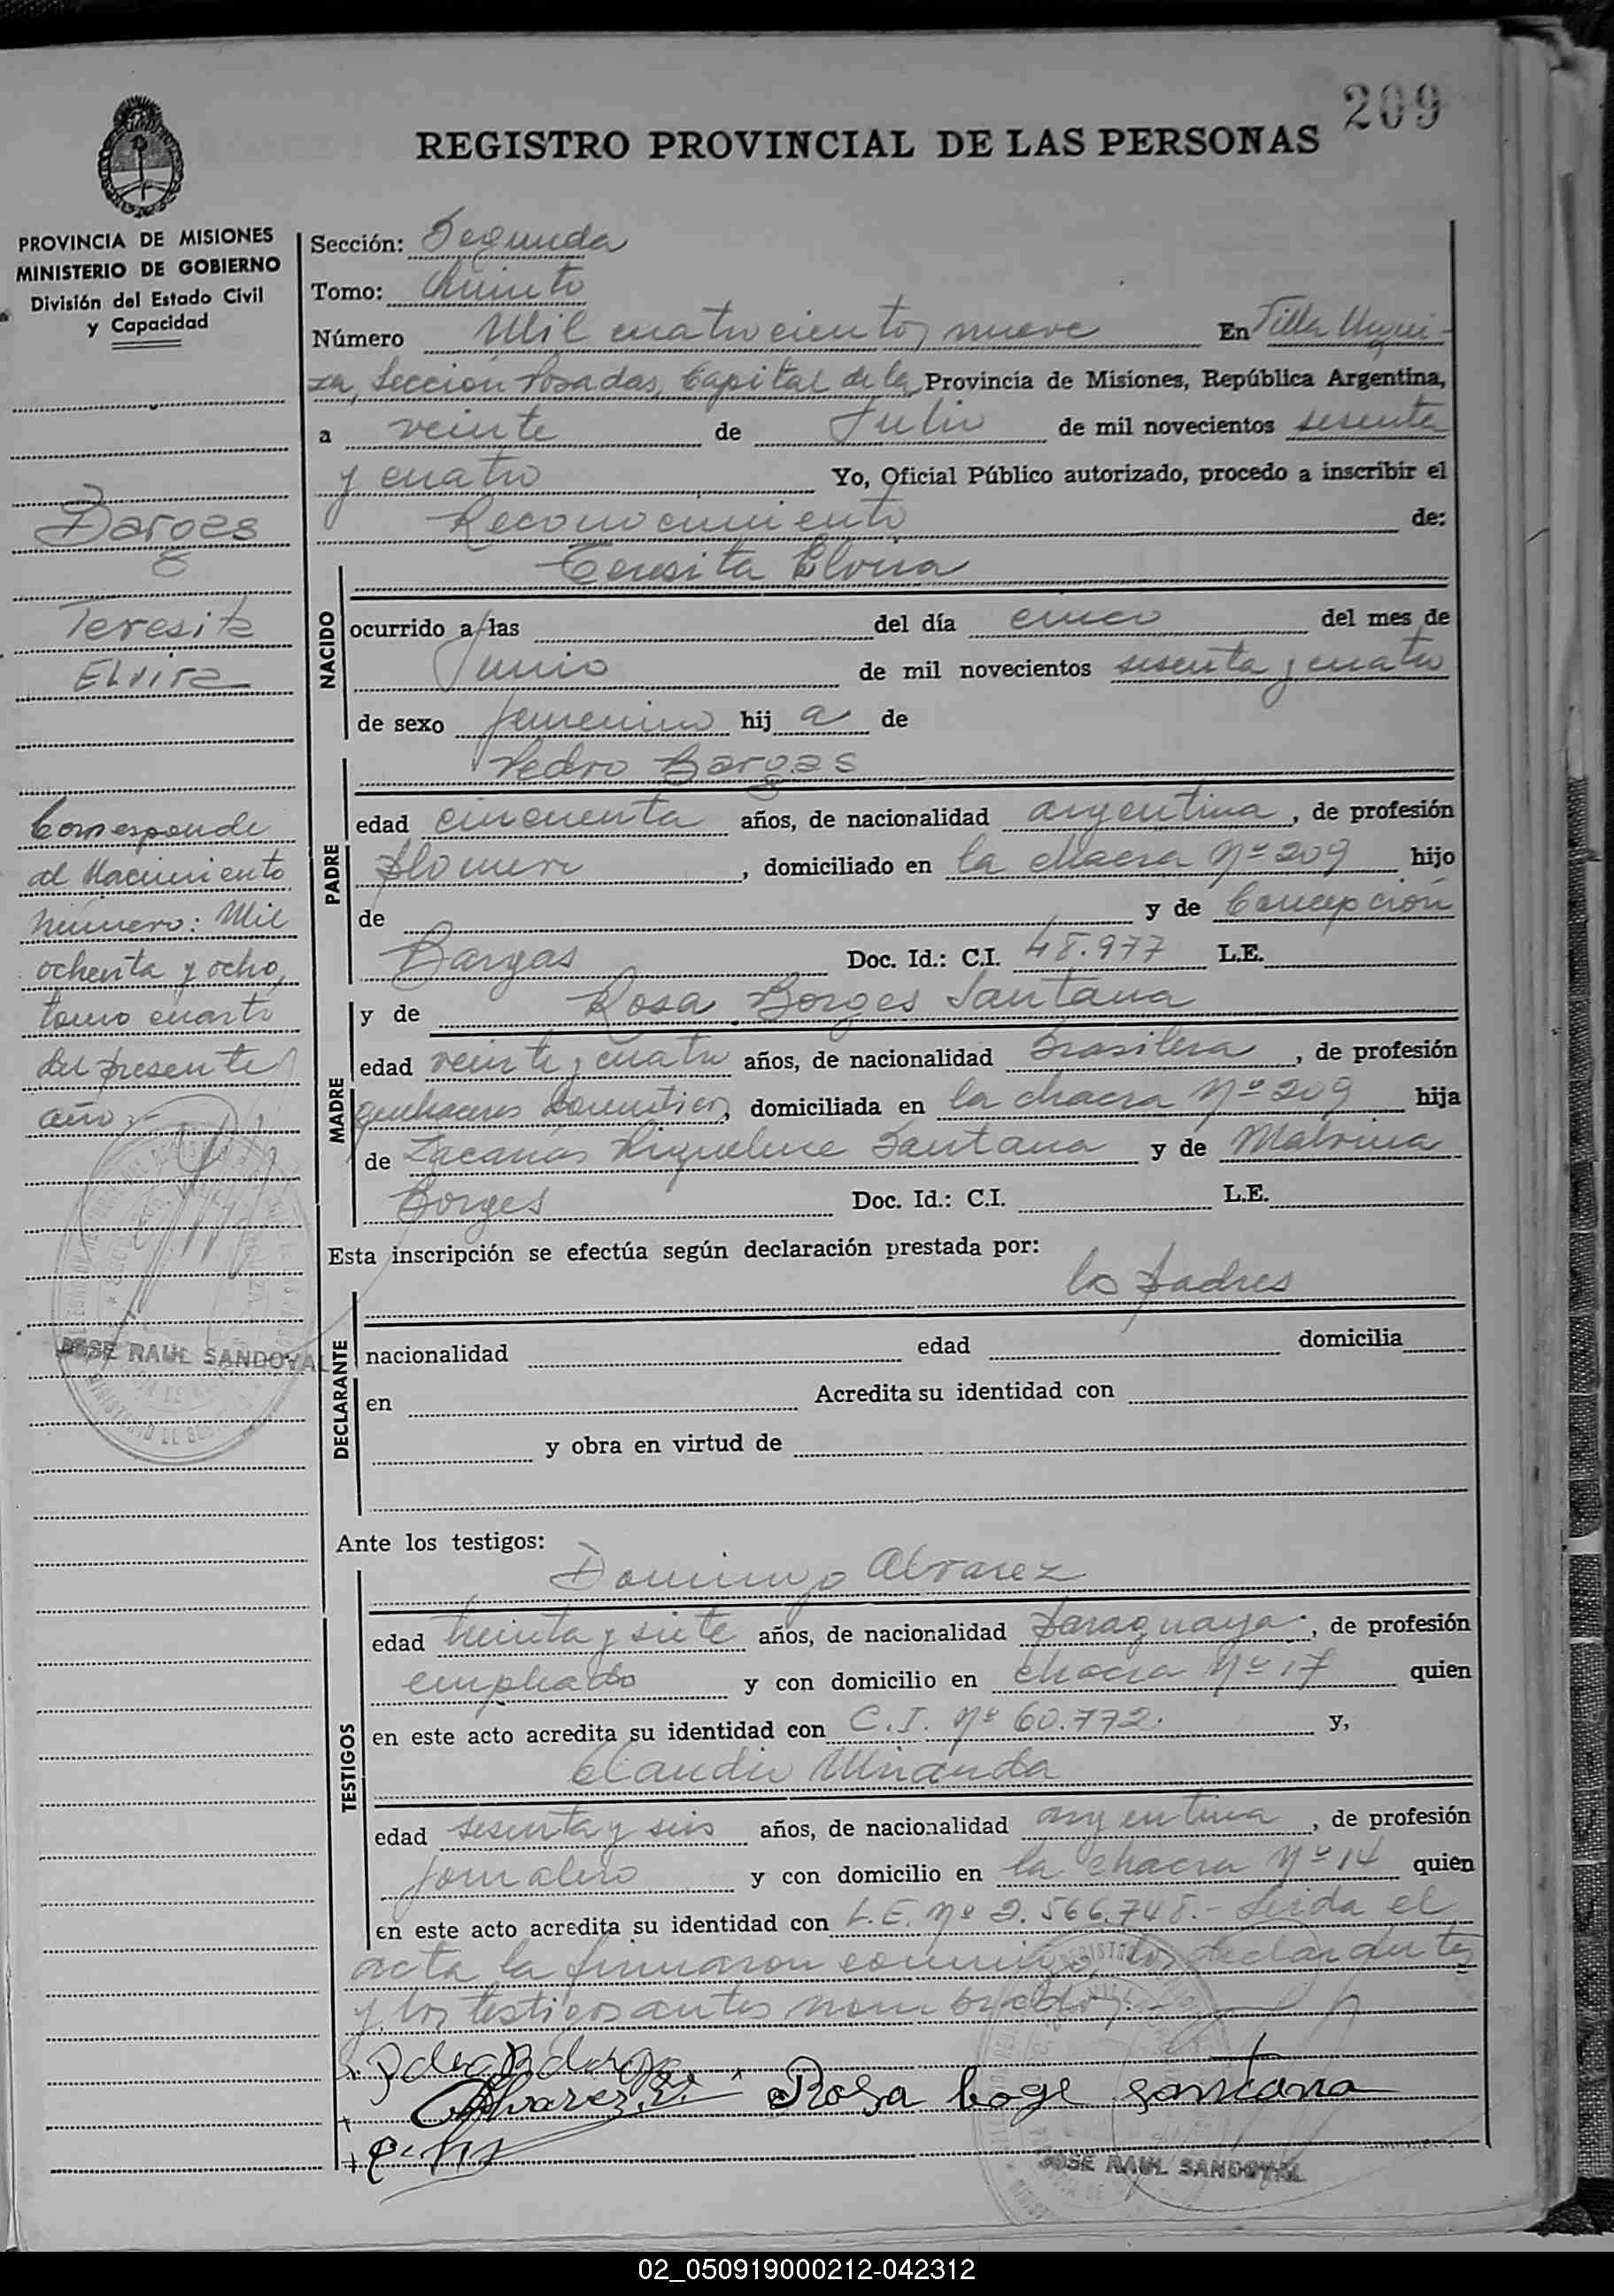 209
REGISTRO PROVINCIAL DE LAS PERSONAS
PROVINCIA DE MISIONES
MINISTERIO DE GOBIERNO
División del Estado Civil
y Capacidad
Bargas
Teresita
Elvira
Corresponde
al Nacimiento
número: Mil
ochenta y ocho,
tomo cuarto
del presente
año.-
JOSE RAUL SANDOVAL
Sección: Segunda
Tomo: Quinto
Número Mil cuatrocientos nueve En Villa Urqui-
za, Sección Posadas, Capital de la Provincia de Misiones, República Argentina,
a veinte de Julio de mil novecientos sesenta
y cuatro Yo, Oficial Público autorizado, procedo a inscribir el
Reconocimiento de:
NACIDO
Teresita Elvira
ocurrido a las del día cinco del mes de
Junio de mil novecientos sesenta y cuatro
de sexo femenino hij a de
PADRE
Pedro Bargas
edad cincuenta años, de nacionalidad argentina, de profesión
plomero, domiciliado en la chacra Nº 209 hijo
de y de Concepción
Bargas Doc. Id.: C.I. 48.977 L.E.
MADRE
y de Rosa Borges Santana
edad veinte y cuatro años, de nacionalidad brasilera, de profesión
quehaceres domésticos, domiciliada en la chacra Nº 209 hija
de Zacarías Riquelme Santana y de Malvina
Borges Doc. Id.: C.I. L.E.
Esta inscripción se efectúa según declaración prestada por:
DECLARANTE
los padres
nacionalidad edad domicilia
en Acredita su identidad con
y obra en virtud de
Ante los testigos:
TESTIGOS
Domingo Alvarez
edad treinta y siete años, de nacionalidad paraguaya, de profesión
empleado y con domicilio en chacra Nº 17 quien
en este acto acredita su identidad con C.I. Nº 60.772. y,
Claudio Miranda
edad sesenta y seis años, de nacionalidad argentina, de profesión
jornalero y con domicilio en la chacra Nº 14 quien
en este acto acredita su identidad con L.E. Nº 2.566.748.- Leida el
acta la firmaron conmigo, los declarantes
y los testigos antes nombrados.-
Alvarez
Rosa boge santana
JOSE RAUL SANDOVAL
02_050919000212-042312